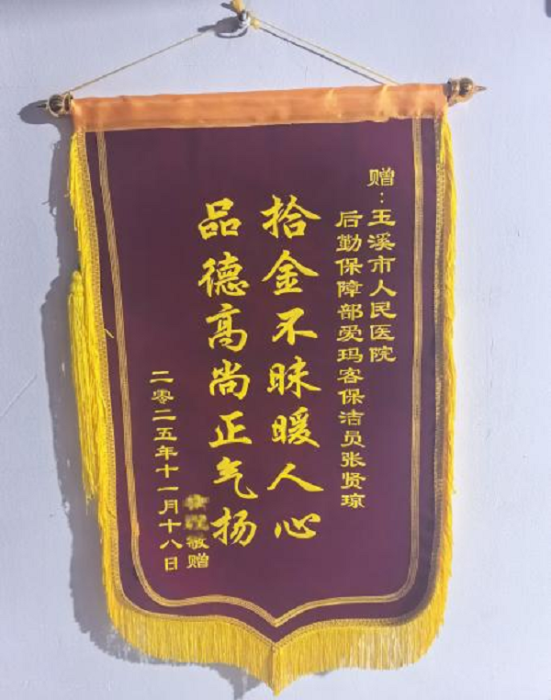 赠：玉溪市人民医院
后勤保障部爱玛客保洁员张贤琼
拾金不昧暖人心
品德高尚正气扬
敬赠
二零二五年十一月十八日